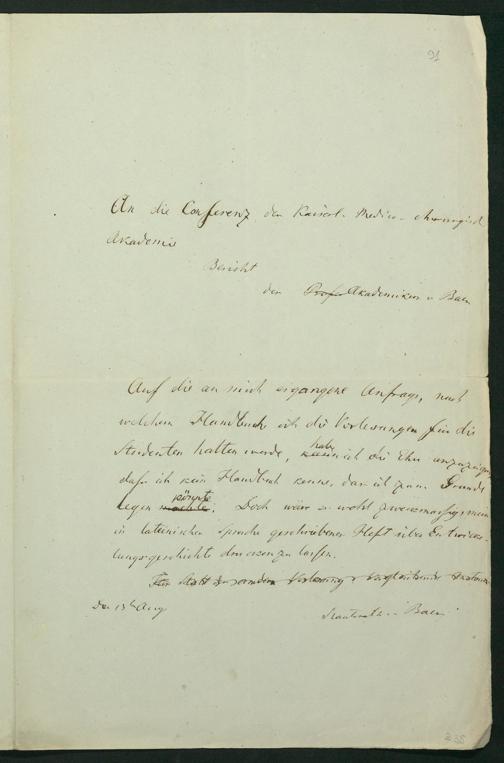 91
An die Conferenz der Kaiserl. Medico-chirurgisch
Akademie
Bericht
des Profes Akademikers v Baer
Auf die an mich ergangene Anfrage, nach
welchem Handbuche ich die Vorlesungen für die
Studenten halten werde, habe ich die Ehre anzuzeigen
dass ich kein Handbuch kenne, das ich zum Grunde
legen könnte. Doch wäre es wohl zweckmässig mein
in lateinischer Sprache geschriebenes Heft über Entwicke-
lungsgeschichte drucken zu lassen.
Vorlesung
Den 13t Aug
Staatsrath v Baer